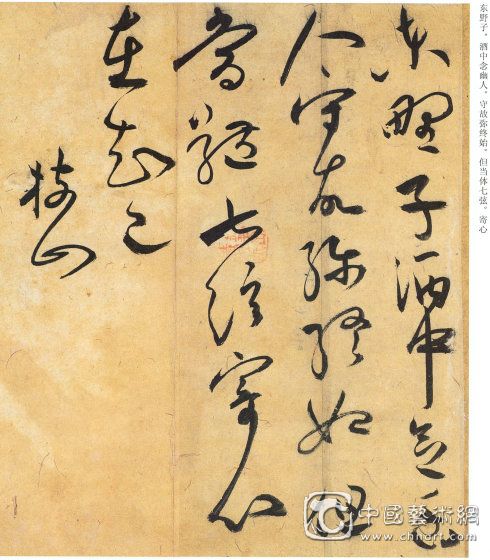 东野子，酒中念幽人，守故弥终始。但当体七弦。寄心
東野子酒中念幽
人守故彌終始但
當體七弦寄心
在知己
枝山
中國藝術網
www.chnart.com